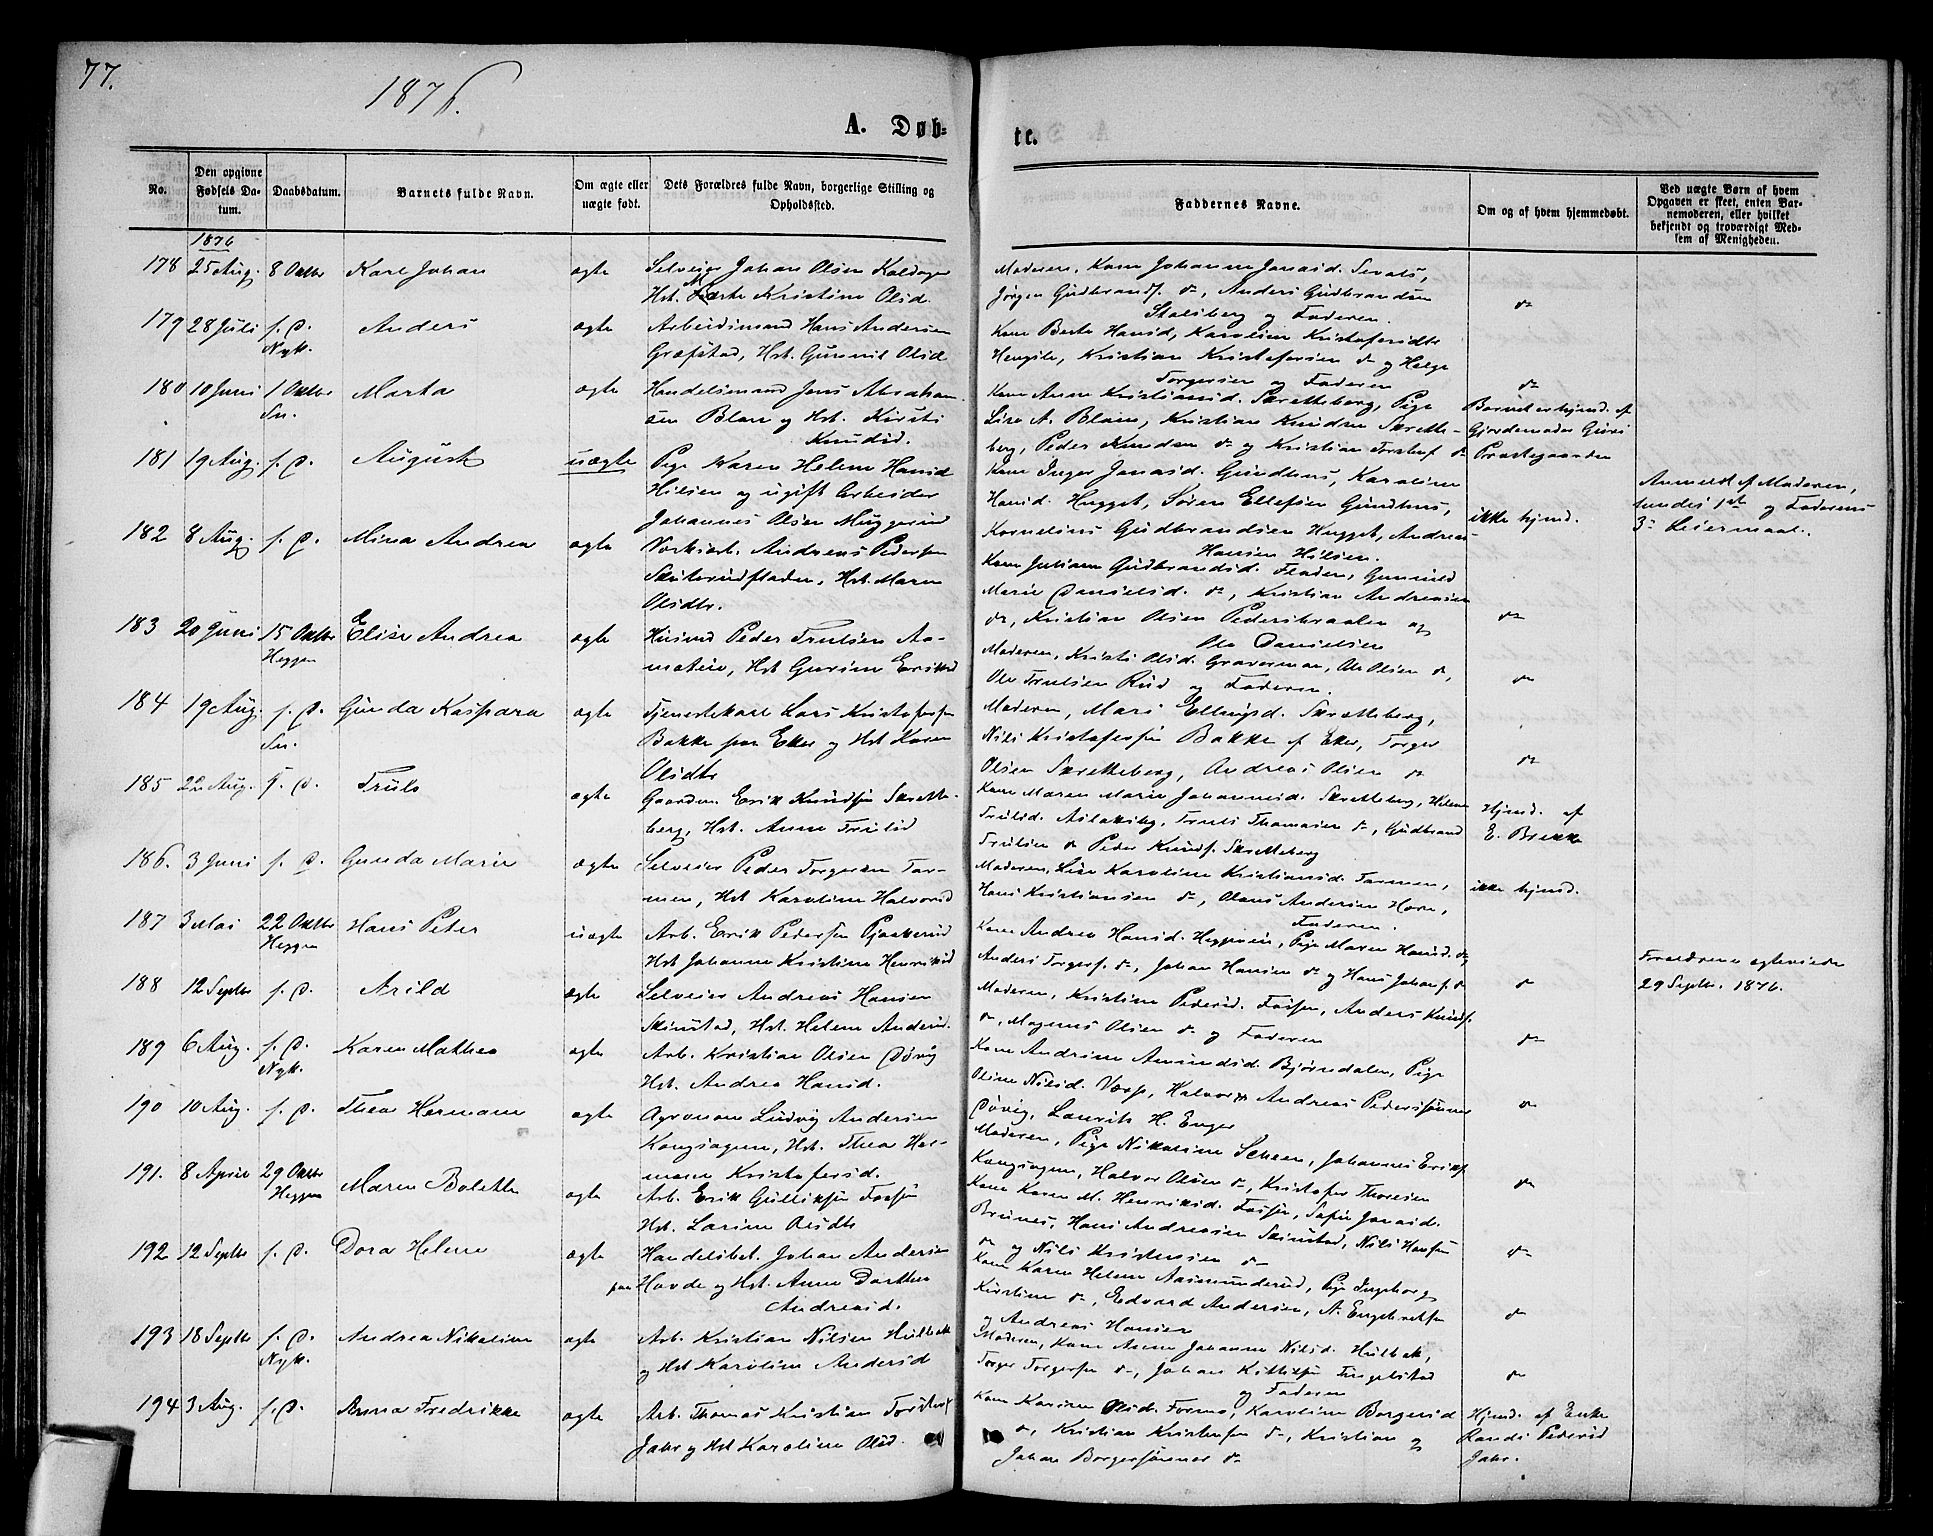 77.
1876.
A. Døb-
te.
No.
Den opgivne
Fødsels Da-
tum.
Daabsdatum.
Barnets fulde Navn.
Om ægte eller
uægte født.
Dets Forældres fulde Navn, borgerlige Stilling og
Opholdssted.
Faddernes Navne.
Om og af hvem hjemmedøbt.
Ved uægte Børn af hvem
Opgaven er skeet, enten Bar-
nemoderen, eller hvilket
bekjendt og troværdigt Med-
lem af Menigheden.
1876
178 25 Aug. 8 Oktbr Karl Johan ægte Selveier Johan Olsen Kaldager
Hst. Marte Kristine Olsd.
Moderen, Kone Johanne Jonasd.
Jørgen Gudbrands. do, Anders Gudbrandsen
Stalsberg og Faderen.
do
179 28 Juli s. D. Anders ægte Arbeidsmand Hans Andersen
Nyk.
Græfstad, Hst. Gunnil Olsd
Kone Berte Hansd, Karoline Kristofersdtr
Hengsle, Kristian Kristofersen do og Helge
Torgersen og Faderen
do
180 10 Juni 1 Oktbr Marta ægte Handelsmand Jens Abraham-
Sn.
sen Blaa og Hst. Kirsti
Knudsd.
Kone Anne Kristiansd. Skretteberg, Pige
Lise A. Blaa, Kristian Knudsen Skrette-
berg, Peder Knudsen do og Kristian Torstens. do
Barnet er hjmd. af
Gjordemoder Guri
Præstegaarden
181 19 Aug. s. D. August uægte Pige Karen Helene Hansd
Hilsen og ugift Arbeider
Johannes Olsen Muggerud
Kone Inger Jonasd. Gundhus, Karoline
Hansd. Hugget, Søren Ellefsen Gundhus,
Kornelius Gudbrandsen Hugget, Andreas
Hansen Hilsen.
ikke hjmd.
Anmeldt af Moderen,
hendes 1ste og Faderens
3die Leiermaal.
182 8 Aug. s. D. Mina Andrea ægte Værksarb. Andreas Pedersen
Skuterudfladen, Hst. Maren
Olsdtr.
Kone Juliane Gudbrandsd. Fladen, Gunnild
Marie Danielsd. do, Kristian Andreasen
do, Kristian Olsen Pedersbraaten og
Ole Danielsen
do
183 20 Juni 15 Oktbr Elise Andrea ægte Husmd Peder Trulsen Aa-
Heggen
moteie, Hst Gurine Eriksd
Moderen, Kristi Olsd. Gravermoen, Ole Olsen do,
Ole Trulsen Rud og Faderen.
do
184 19 Aug. s. D. Gunda Kaspara ægte Tjenestekarl Lars Kristofersen
Sn.
Bakke paa Eker og Hst Karen
Olsdtr
Moderen, Mari Ellingsd. Skretteberg,
Nils Kristofersen Bakke af Eker, Torger
Olsen Skretteberg, Andreas Olsen do
do
185 22 Aug. s. D. Truls ægte Gaardm. Erik Knudsen Skrette-
berg, Hst. Anne Trulsd
Kone Maren Marie Johannesd. Skretteberg, Helene
Trulsd. Aslaksby, Truls Thomasen do, Gudbrand
Trulsen do Peder Knuds. Skretteberg
Hjmd. af
E. Brekke
186. 3 Juni s. D. Gunda Marie ægte Selveier Peder Torgersen Tor-
men, Hst Karoline Halvorsd
Moderen, Lise Karoline Kristiansd. Tormen,
Hans Kristiansen do, Olaus Andersen Horn,
Faderen.
ikke hjmd.
187 3 Mai 22 Oktbr Hans Peter uægte Arb. Erik Pedersen Pjaakerud
Heggen
Hst Johanne Kristine Henriksd
Kone Andrea Hansd. Heggveien, Pige Maren Hansd. do,
Anders Torgers. do, Johan Hansen do og Hans Johans. do
do
Forældrene ægteviede
29 Septbr. 1876.
188 12 Septbr s. D. Arild ægte Selveier Andreas Hansen
Skinstad, Hst. Helene Andersd.
Moderen, Kristine Pedersd. Fossen, Anders Knuds.
do, Magnus Olsen do og Faderen
do
189 6 Aug. s. D. Karen Mathea ægte Arb. Kristian Olsen Døvig
Nyk.
Hst. Andrea Hansd.
Kone Andrine Amundsd. Bjørndalen, Pige
Oline Nilsd. Værp, Halvor og Andreas Pederssønner
Døvig, Laurits H. Enger
do
190 10 Aug. s. D. Thea Hermane ægte Agronom Ludvig Andersen
Kongsagene, Hst. Thea Her-
mane Kristofersd.
Moderen, Pige Nikoline Scheen, Johannes Eriks.
Kongsagene, Halvor Olsen do, Kristofer Thoresen
do
191. 8 April 29 Oktbr Maren Bolette ægte Arb. Erik Gulliksen Fossen
Heggen
Hst. Larine Olsdtr
Kone Karen M. Henriksd. Fossen, Sofie Jonasd.
Brunes, Hans Andreasen Skinstad, Nils Hansen
do og Nils Kristensen do
do
192 12 Septbr s. D. Dora Helene ægte Handelsbet. Johan Andersen
paa Hovde og Hst. Anne Dorthea
Andreasd.
Kone Karen Helene Aasmunderud, Pige Ingeborg
Kirstine do, Edvard Andersen, A. Engebretsen
og Andreas Hansen
do
193 18 Septbr s. D. Andrea Nikoline ægte Arb. Kristian Nilsen Hulbak
Nyk.
og Hst Karoline Andersd
Moderen, Kone Anne Johanne Nilsd. Hulbak,
Torger Torgersen do, Johan Kittilsen Tingelstad
og Faderen
do
194 3 Aug. s. D. Anna Fredrikke ægte Arb. Thomas Kristian Torstens.
Jahr og Hst Karoline Olsd.
Kone Karine Olsd. Formo, Karoline Borgersd
do, Kristian Kristensen do, Kristian og
Johan Borgerssønner do
Hjmd. af Enke
Randi Pedersd
Jahr.